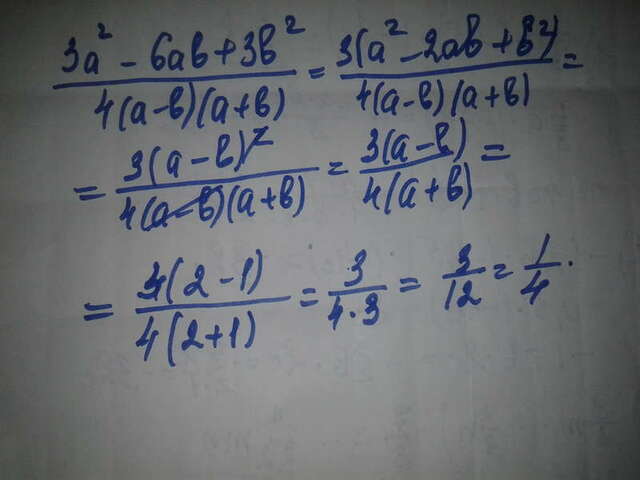 (3a² - 6ab + 3b²)/(4(a-b)(a+b)) = (3(a² - 2ab + b²))/(4(a-b)(a+b)) =
= (3(a-b)²)/(4(a-b)(a+b)) = (3(a-b))/(4(a+b)) =
= (3(2-1))/(4(2+1)) = 3/(4·3) = 3/12 = 1/4.